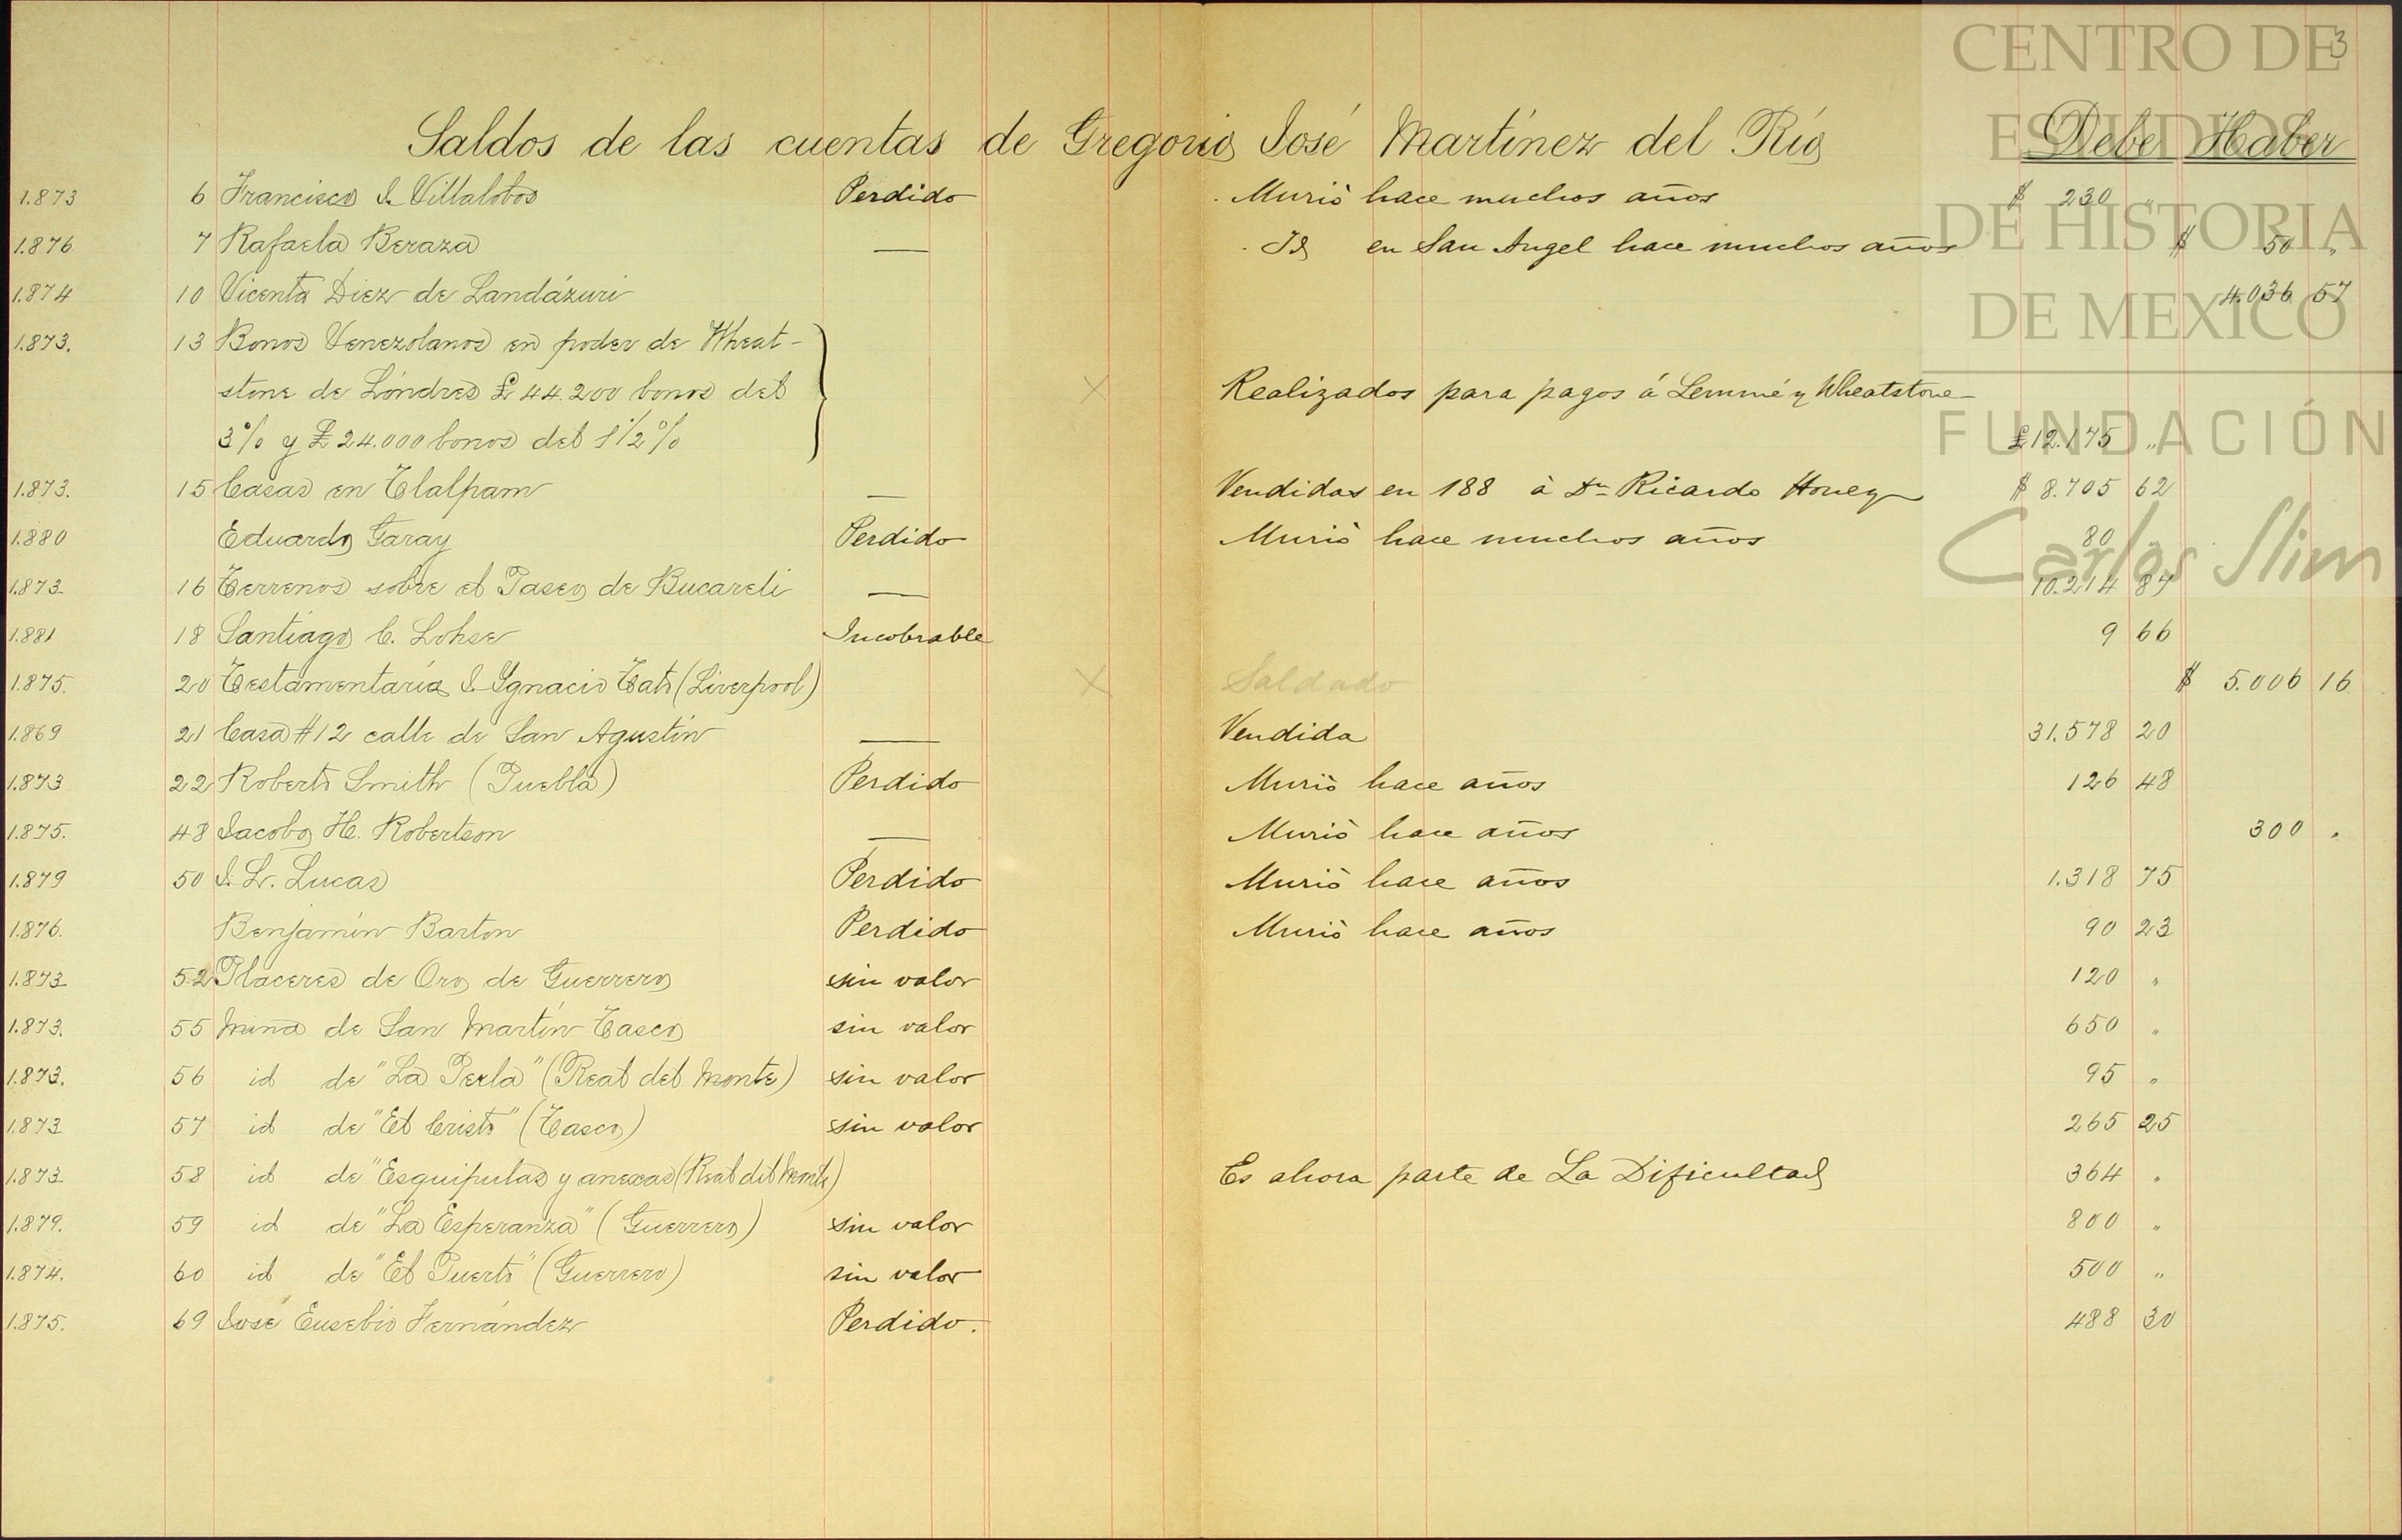 3
Saldos de las cuentas de Gregorio José Martínez del Río Debe Haber
1.873 6 Francisco J. Villalobos Perdido Murió hace muchos años $ 230 "
1.876 7 Rafaela Beraza — Id en San Angel hace muchos años $ 50 "
1.874 10 Vicenta Diez de Landázuri 4.036 57
1.873. 13 Bonos Venezolanos en poder de Wheat-
stone de Lóndres £ 44.200 bonos del X Realizados para pagos á Lemmé y Wheatstone
3% y £ 24.000 bonos del 1 1/2 % £12.175 "
1.873. 15 Casas en Tlalpam — Vendidas en 188 à Dn Ricardo Honey $ 8.705 62
1.880 Eduardo Garay Perdido Murió hace muchos años 80
1.873 16 Terrenos sobre el Paseo de Bucareli — 10.214 87
1.881 18 Santiago C. Lohse Incobrable 9 66
1.875. 20 Testamentaría J. Ygnacio Tato (Liverpool) X Saldado $ 5.006 16
1.869 21 Casa #12 calle de San Agustín — Vendida 31.578 20
1.873 22 Roberto Smith (Puebla) Perdido Murió hace años 126 48
1.875. 48 Jacobo H. Robertson — Murió hace años 300 "
1.879 50 J. Lr. Lucas Perdido Murió hace años 1.318 75
1.876. Benjamín Barton Perdido Murió hace años 90 23
1.873 52 Placeres de Oro de Guerrero sin valor 120 "
1.873. 55 Mina de San Martín Tasco sin valor 650 "
1.873. 56 id de "La Perla" (Real del Monte) sin valor 95 "
1.873 57 id de "El Cristo" (Tasco) sin valor 265 25
1.873 58 id de "Esquipulas y anexas (Real del Monte) Es ahora parte de La Dificultad 364 "
1.879. 59 id de "La Esperanza" (Guerrero) sin valor 800 "
1.874. 60 id de "El Puerto" (Guerrero) sin valor 500 "
1.875. 69 José Eusebio Fernández Perdido. 488 30
CENTRO DE
ESTUDIOS
DE HISTORIA
DE MEXICO
FUNDACIÓN
Carlos Slim